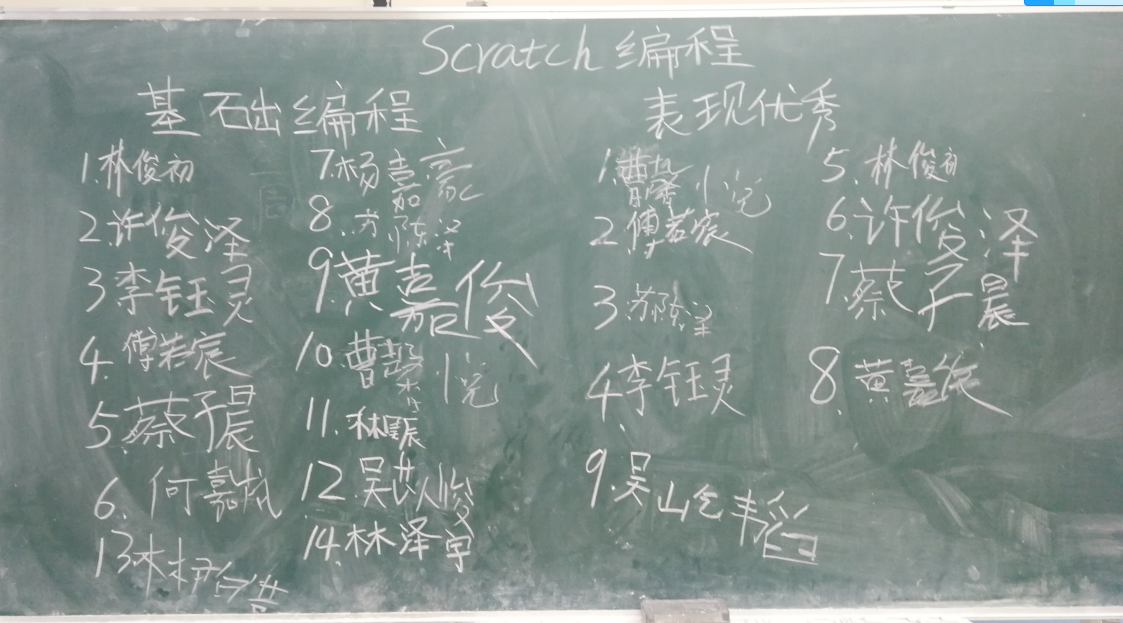 Scratch编程
基础编程
1.林俊初
2.许俊泽
3李钰灵
4.傅若宸
5.蔡子晨
6.何嘉
13林
7.杨嘉豪
8.苏陈泽
9.黄嘉俊
10曹馨悦
11.林
12吴峻
14.林泽宇
表现优秀
1.曹馨悦
2傅若宸
3.苏陈泽
4李钰灵
9.吴韬
5.林俊初
6.许俊泽
7.蔡子晨
8.黄嘉俊